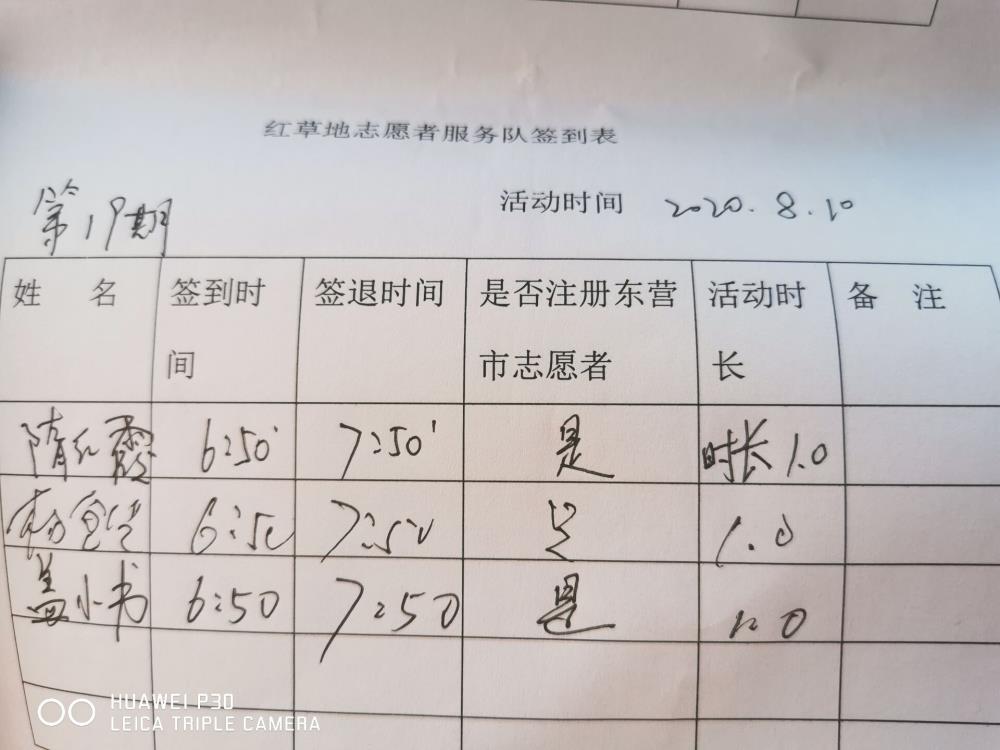 红草地志愿者服务队签到表
第19期 活动时间 2020.8.10
姓 名 签到时间 签退时间 是否注册东营市志愿者 活动时长 备 注
隋红霞 6:50' 7:50' 是 时长1.0
杨 6:50 7:50 是 1.0
盖小书 6:50 7:50 是 1.0
HUAWEI P30
LEICA TRIPLE CAMERA